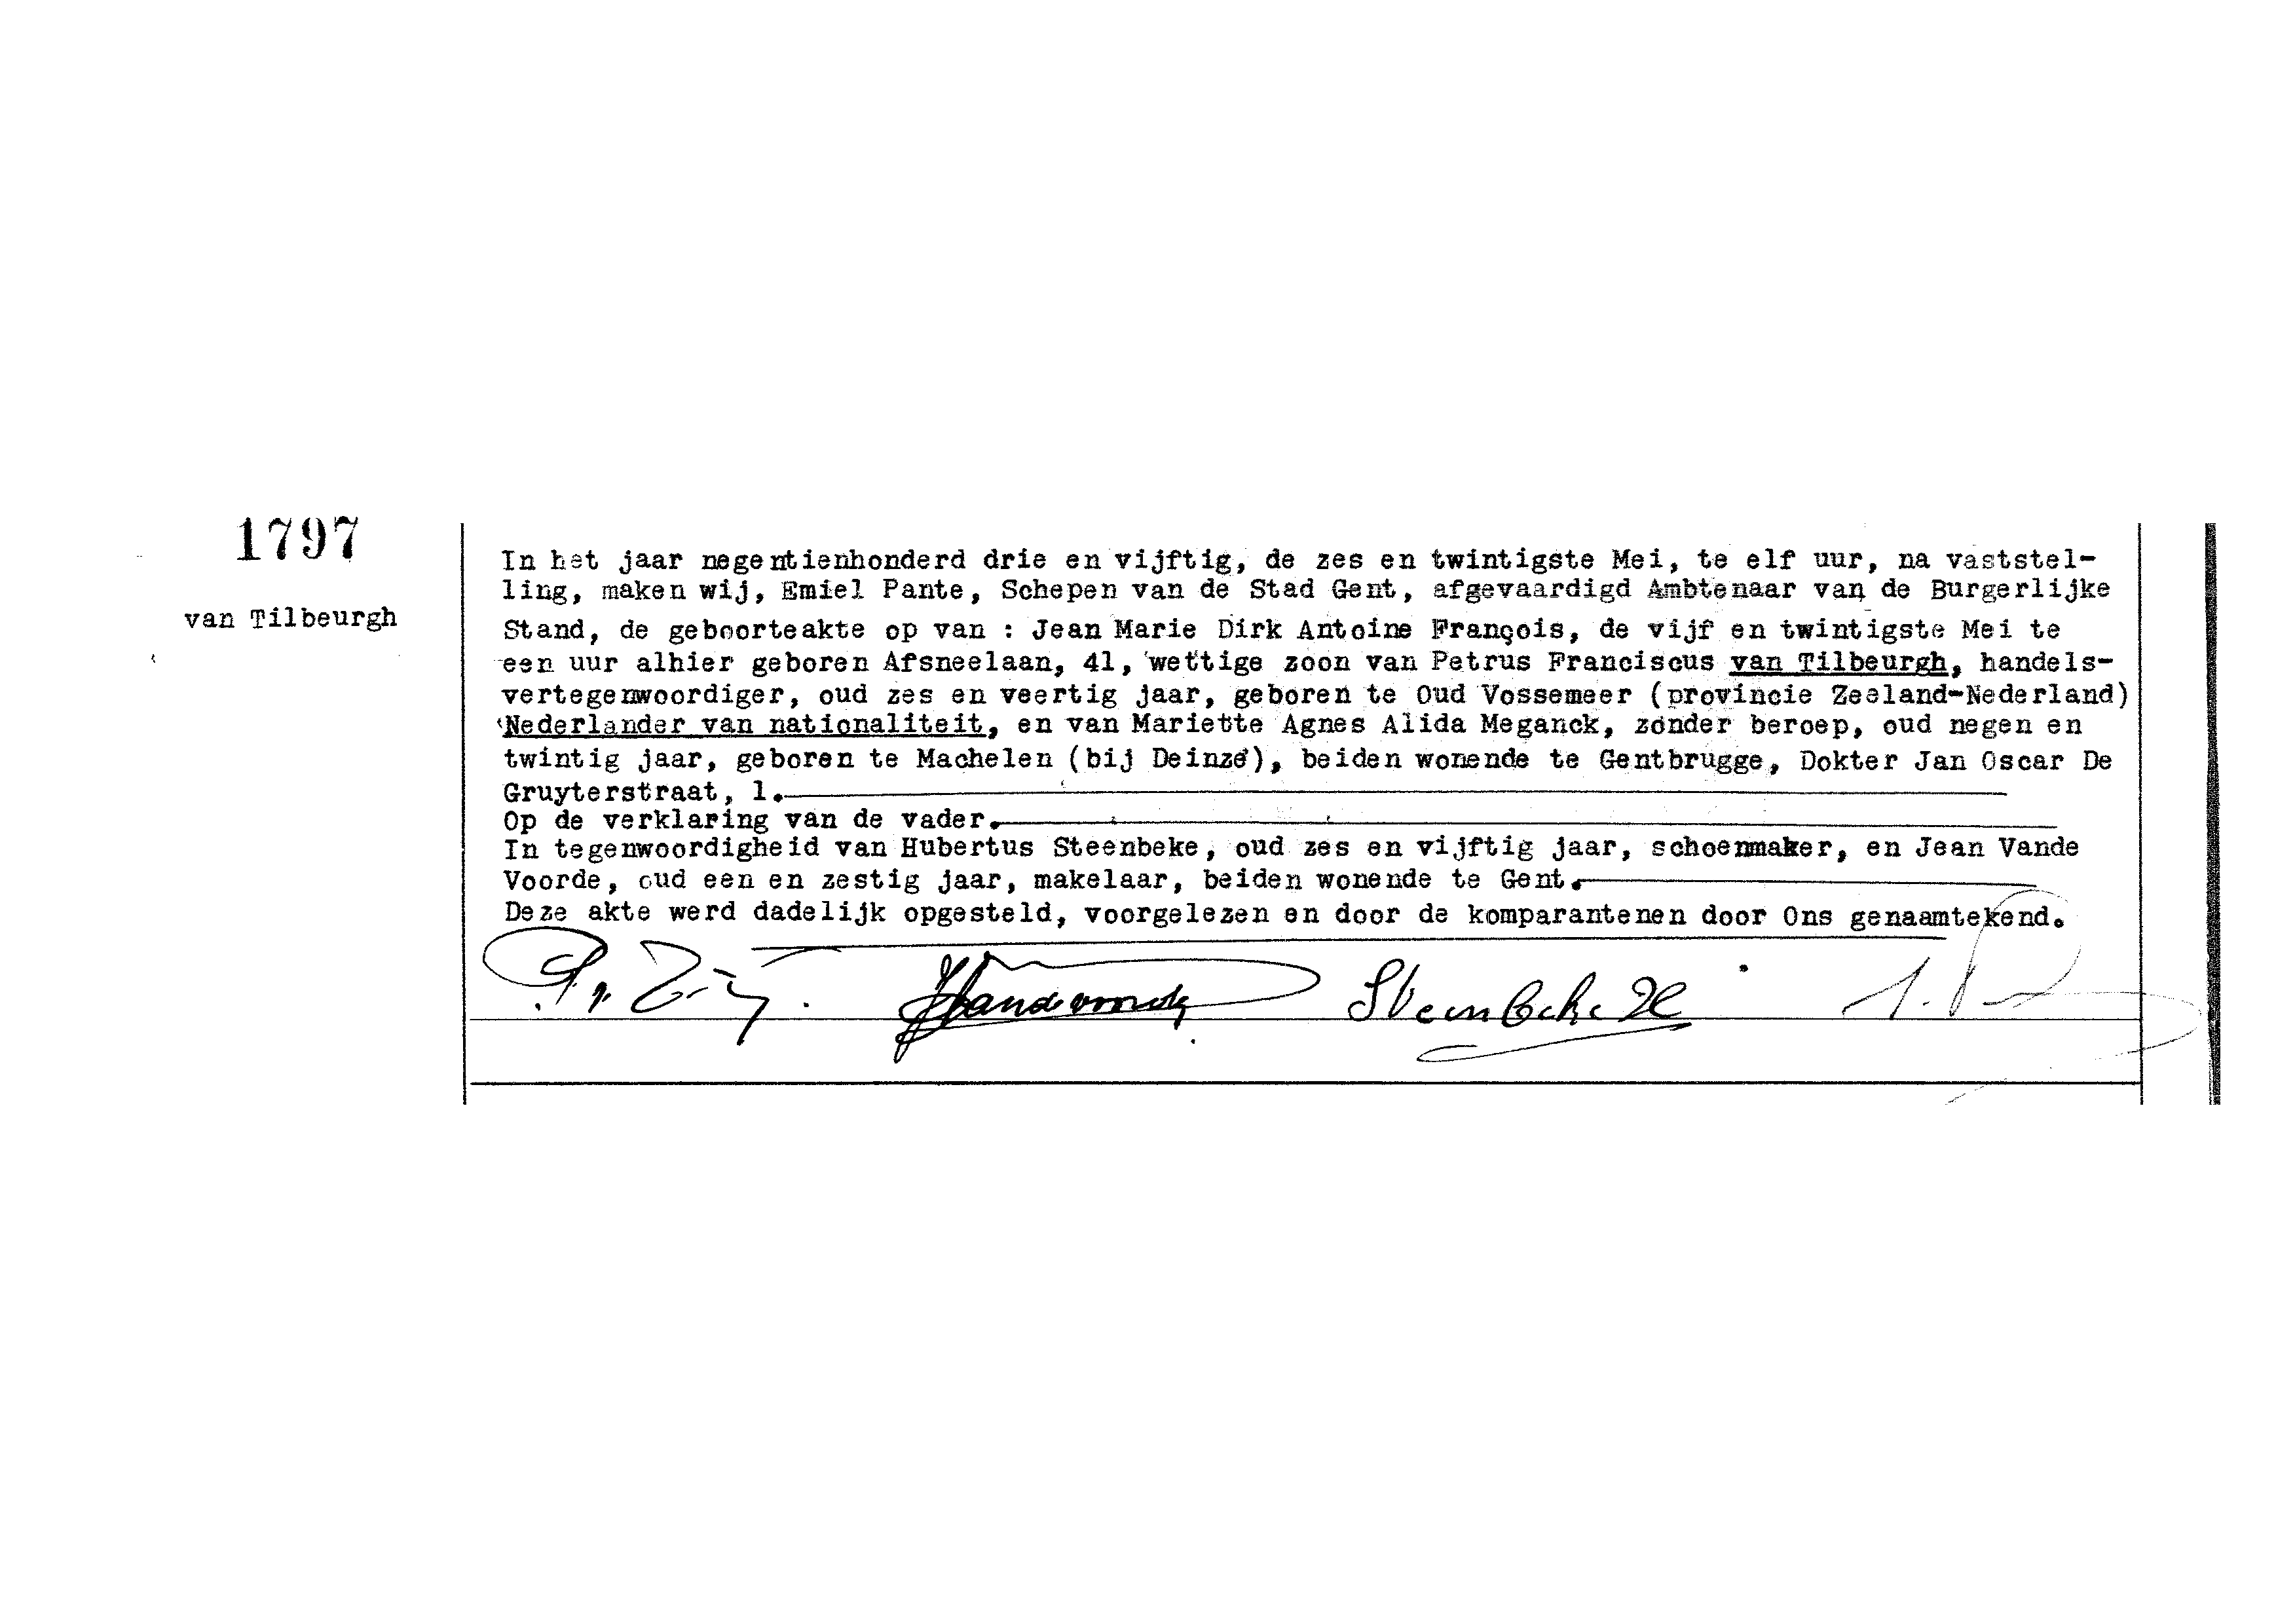 1797
van Tilbeurgh
In het jaar negentienhonderd drie en vijftig, de zes en twintigste Mei, te elf uur, na vaststel-
ling, maken wij, Emiel Pante, Schepen van de Stad Gent, afgevaardigd Ambtenaar van de Burgerlijke
Stand, de geboorteakte op van : Jean Marie Dirk Antoine François, de vijf en twintigste Mei te
een uur alhier geboren Afsneelaan, 41, wettige zoon van Petrus Franciscus van Tilbeurgh, handels-
vertegenwoordiger, oud zes en veertig jaar, geboren te Oud Vossemeer (provincie Zeeland-Nederland)
Nederlander van nationaliteit, en van Mariette Agnes Alida Meganck, zonder beroep, oud negen en
twintig jaar, geboren te Machelen (bij Deinze), beiden wonende te Gentbrugge, Dokter Jan Oscar De
Gruyterstraat, 1.
Op de verklaring van de vader.
In tegenwoordigheid van Hubertus Steenbeke, oud zes en vijftig jaar, schoenmaker, en Jean Vande
Voorde, oud een en zestig jaar, makelaar, beiden wonende te Gent.
Deze akte werd dadelijk opgesteld, voorgelezen en door de komparantenen door Ons genaamtekend.